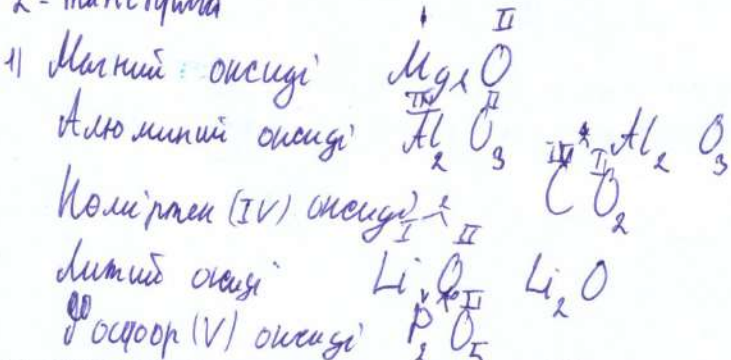 2 - тапсырма
1) Магний оксиді Mg₂O
Алюминий оксиді Al₂O₃ Al₂O₃
Көміртек (IV) оксиді CO₂
Литий оксиді Li O Li₂O
Фосфор (V) оксиді P₂O₅